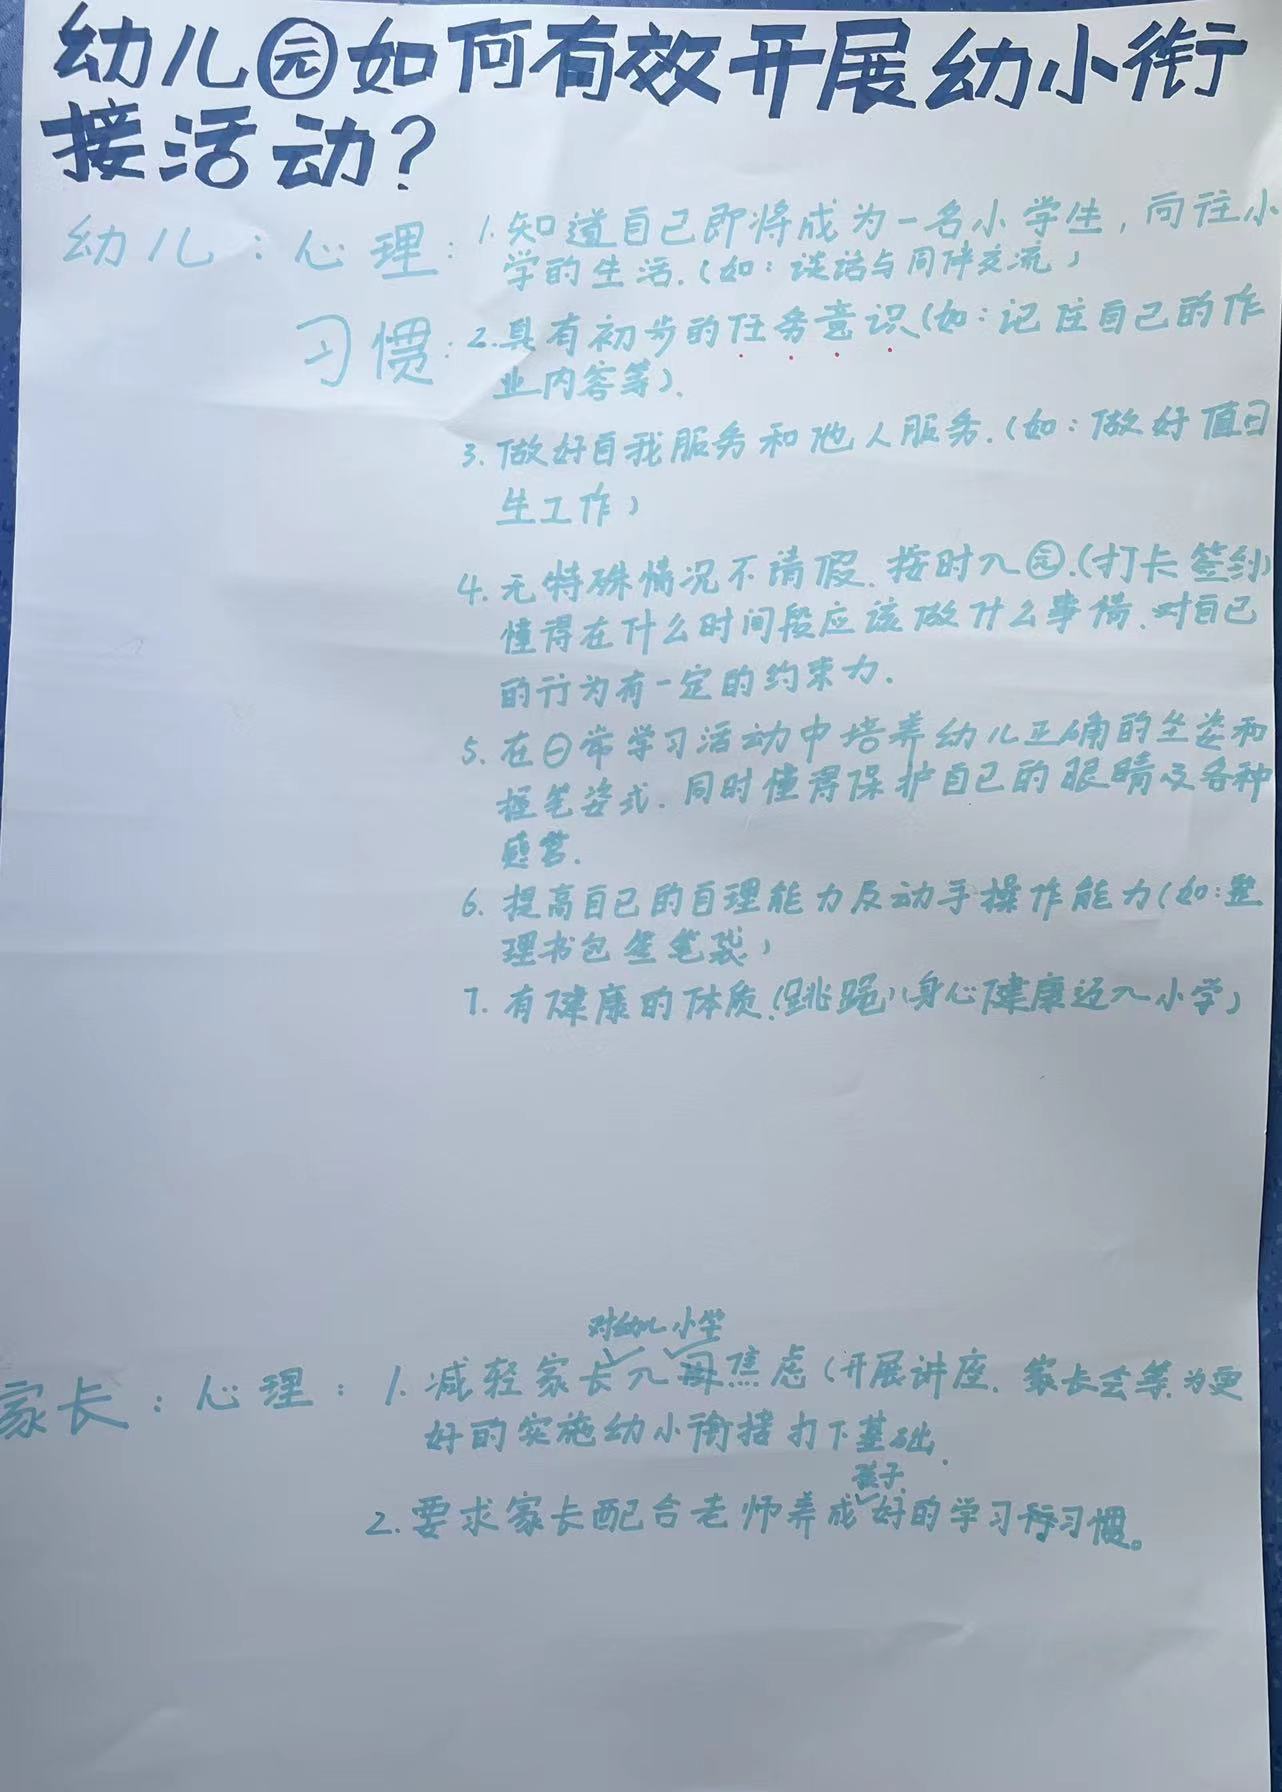 幼儿园如何有效开展幼小衔
接活动？
幼儿：心理：1.知道自己即将成为一名小学生，向往小
学的生活.(如：谈话与同伴交流)
习惯：2.具有初步的任务意识(如：记住自己的作
业内容等).
3.做好自我服务和他人服务.(如：做好值日
生工作)
4.无特殊情况不请假.按时入园.(打卡签到)
懂得在什么时间段应该做什么事情.对自己
的行为有一定的约束力.
5.在日常学习活动中培养幼儿正确的坐姿和
握笔姿式.同时懂得保护自己的眼睛及各种
感官.
6.提高自己的自理能力及动手操作能力(如：整
理书包 笔袋)
7.有健康的体质.(跳绳)(身心健康迈入小学)
对幼儿 小学
家长：心理：1.减轻家长入焦虑(开展讲座.家长会等.为更
好的实施幼小衔接打下基础.
孩子
2.要求家长配合老师养成好的学习习惯。